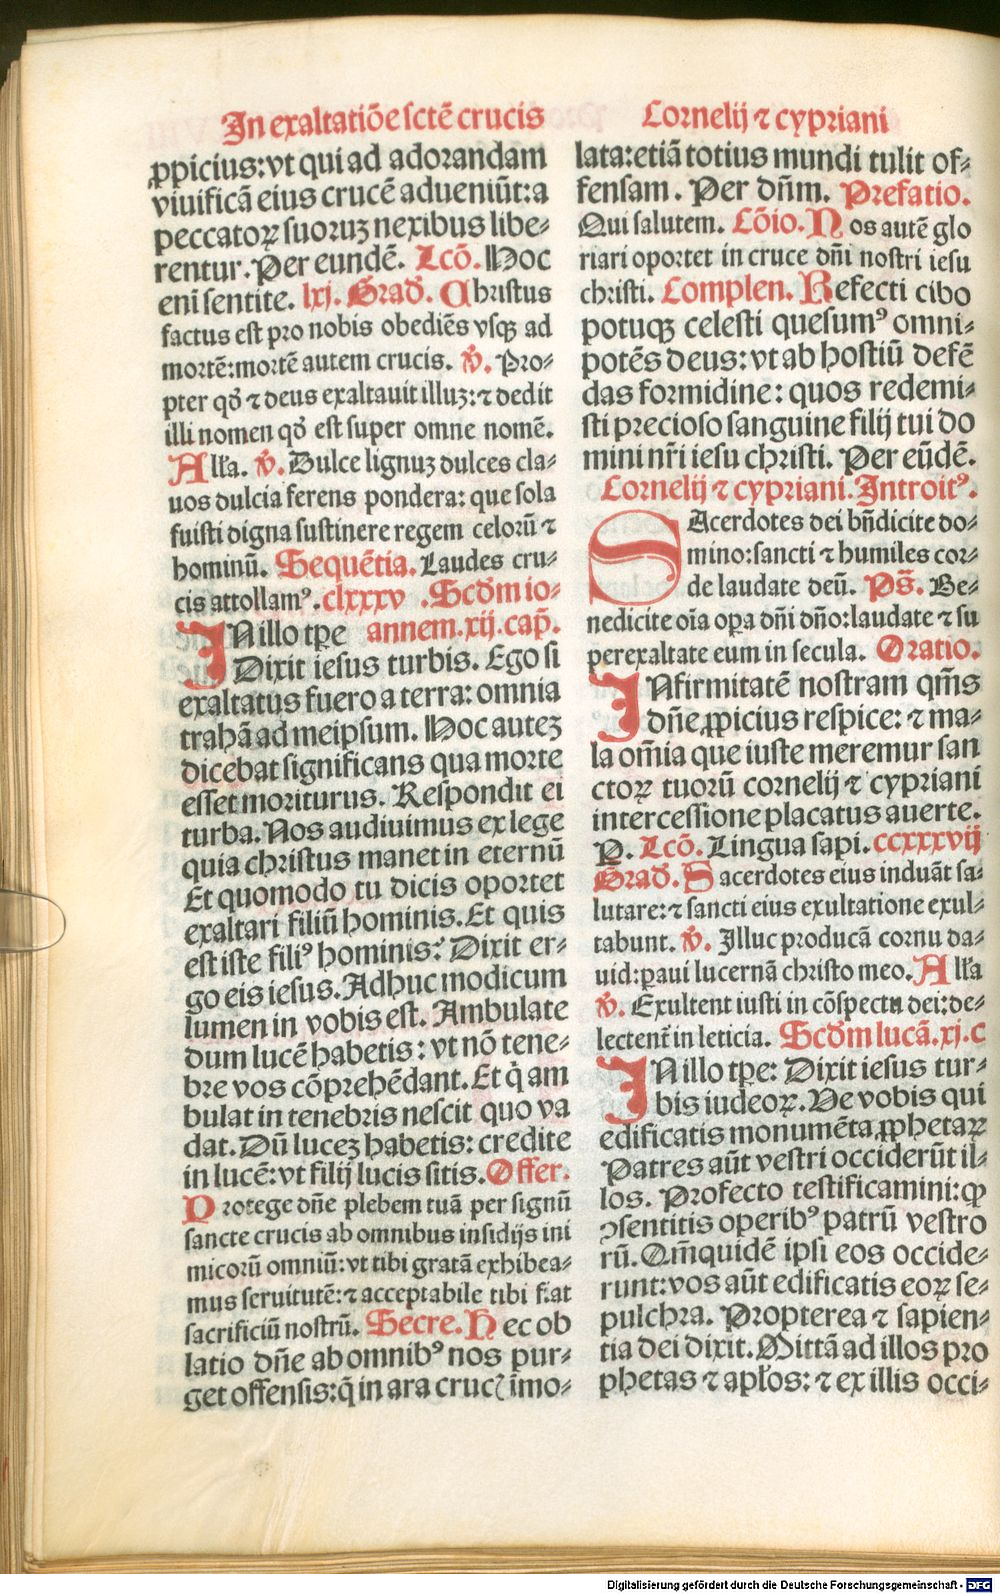 In exaltatiōe sctē crucis
ꝓpicius: vt qui ad adorandam
viuificā eius crucē adueniūt: a
peccatoꝝ suoruʒ nexibus libe⸗
rentur. Per eundē. Lcō. Hoc
eni sentite. lxj. Grad̄. Christus
factus est pro nobis obediēs vsqꝫ ad
mortē: mortē autem crucis. v̄. Pro⸗
pter qd̄ ⁊ deus exaltauit illuʒ: ⁊ dedit
illi nomen qd̄ est super omne nomē.
Alła. v̄. Dulce lignuʒ dulces cla⸗
uos dulcia ferens pondera: que sola
fuisti digna sustinere regem celorū ⁊
hominū. Sequētia. Laudes cru⸗
cis attollamꝰ. clxxxv. Scd̄m io⸗
IN illo tꝑe annem. xij. cap̄.
Dixit iesus turbis. Ego si
exaltatus fuero a terra: omnia
trahā ad meipsum. Hoc auteʒ
dicebat significans qua morte
esset moriturus. Respondit ei
turba. Nos audiuimus ex lege
quia christus manet in eternū
Et quomodo tu dicis oportet
exaltari filiū hominis. Et quis
est iste filiꝰ hominis? Dixit er⸗
go eis iesus. Adhuc modicum
lumen in vobis est. Ambulate
dum lucē habetis: vt nō tene⸗
bre vos cōprehēdant. Et q̇ am
bulat in tenebris nescit quo va
dat. Dū luceʒ habetis: credite
in lucē: vt filij lucis sitis. Offer.
Protege dn̄e plebem tuā per signū
sancte crucis ab omnibus insidijs ini
micorū omniū: vt tibi gratā exhibea⸗
mus seruitutē: ⁊ acceptabile tibi fiat
sacrificiū nostrū. Secre. Hec ob
latio dn̄e ab omnibꝰ nos pur⸗
get offensis: q̄ in ara crucꝭ īmo⸗
Cornelij ⁊ cypriani
lata: etiā totius mundi tulit of⸗
fensam. Per dn̄m. Prefatio.
Qui salutem. Cōio. Nos autē glo
riari oportet in cruce dn̄i nostri iesu
christi. Complen. Refecti cibo
potuqꝫ celesti quesumꝰ omni⸗
potēs deus: vt ab hostiū defē
das formidine: quos redemi⸗
sti precioso sanguine filij tui do
mini nr̄i iesu christi. Per eūdē.
Cornelij ⁊ cypriani. Introitꝰ.
SAcerdotes dei bn̄dicite do⸗
mino: sancti ⁊ humiles cor⸗
de laudate deū. Ps̄. Be⸗
nedicite oīa oꝑa dn̄i dn̄o: laudate ⁊ su
perexaltate eum in secula. Oratio.
INfirmitatē nostram qm̄s
dn̄e ꝓpicius respice: ⁊ ma⸗
la om̄ia que iuste meremur san
ctoꝝ tuorū cornelij ⁊ cypriani
intercessione placatus auerte.
P. Lcō. Lingua sapi. ccxxxvij
Grad̄. Sacerdotes eius induāt sa⸗
lutare: ⁊ sancti eius exultatione exul⸗
tabunt. v̄. Illuc producā cornu da⸗
uid: ꝑaui lucernā christo meo. Alła
v̄. Exultent iusti in cōspectu dei: de⸗
lectent̄ in leticia. Scd̄m lucā. xj. c
IN illo tꝑe: Dixit iesus tur⸗
bis iudeoꝝ. Ve vobis qui
edificatis monumēta ꝓphetaꝝ
Patres aūt vestri occiderūt il⸗
los. Profecto testificamini: ꝙ
ꝯsentitis operibꝰ patrū vestro
rū. Qm̄ quidē ipsi eos occide⸗
runt: vos aūt edificatis eoꝝ se⸗
pulchra. Propterea ⁊ sapien⸗
tia dei dixit. Mittā ad illos pro
phetas ⁊ apłos: ⁊ ex illis occi⸗
Digitalisierung gefördert durch die Deutsche Forschungsgemeinschaft - DFG